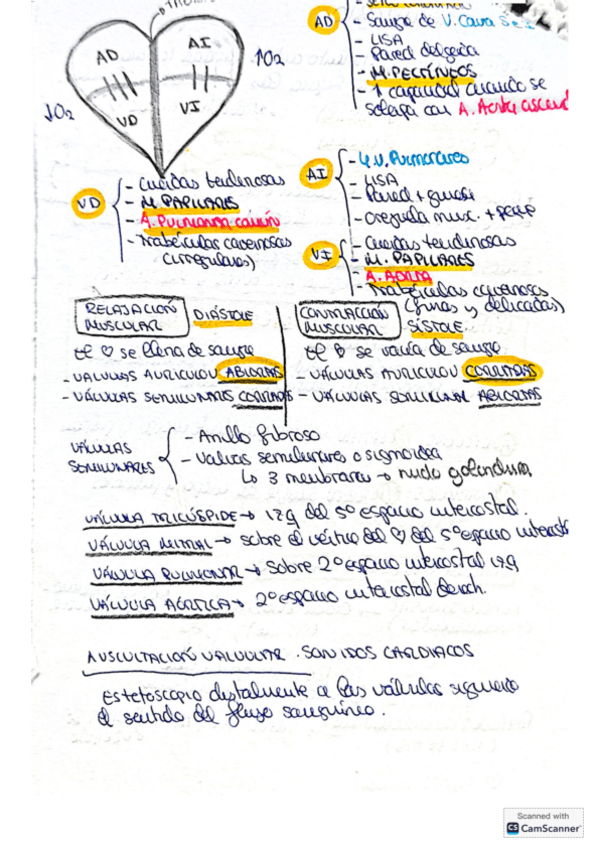 AD
- Sangre de V. Cava S e I
- LISA
- Pared delgada
- M. PECTÍNEOS
- ↑ capacidad cuando se
solapa con A. Aorta ascend
AD
AI
VD
VI
↓O2
↑O2
VD
- Cuerdas tendinosas
- M. PAPILARES
- A. PULMONAR común
- Trabéculas carneosas
(irregulares)
AI
- 4 V. Pulmonares
- LISA
- Pared + gruesa
- Orejuela musc. + peq
VI
- Cuerdas tendinosas
- M. PAPILARES
- A. AORTA
- Trabéculas carneosas
(finas y delicadas)
RELAJACIÓN
MUSCULAR
DIÁSTOLE
El ♡ se llena de sangre
- VALVULAS AURICULOV ABIERTAS
- VÁLVULAS SEMILUNARES CERRADAS
CONTRACCIÓN
MUSCULAR
SÍSTOLE
El ♡ se vacía de sangre
- VÁLVULAS AURICULOV CERRADAS
- VÁLVULAS SEMILUNAR ABIERTAS
VÁLVULAS
SEMILUNARES
- Anillo fibroso
- Valvas semilunares o sigmoidea
↳ 3 membranas → nido golondrina
VÁLVULA TRICÚSPIDE → izq del 5º espacio intercostal.
VÁLVULA MITRAL → sobre el vértice del ♡ del 5º espacio intercosts
VÁLVULA PULMONAR → Sobre 2º espacio intercostal izq
VÁLVULA AÓRTICA → 2º espacio intercostal derch.
AUSCULTACIÓN VALVULAR. SONIDOS CARDIACOS
Estetoscopio distalmente a las válvulas siguiendo
el sentido del flujo sanguíneo.
Scanned with
CS CamScanner